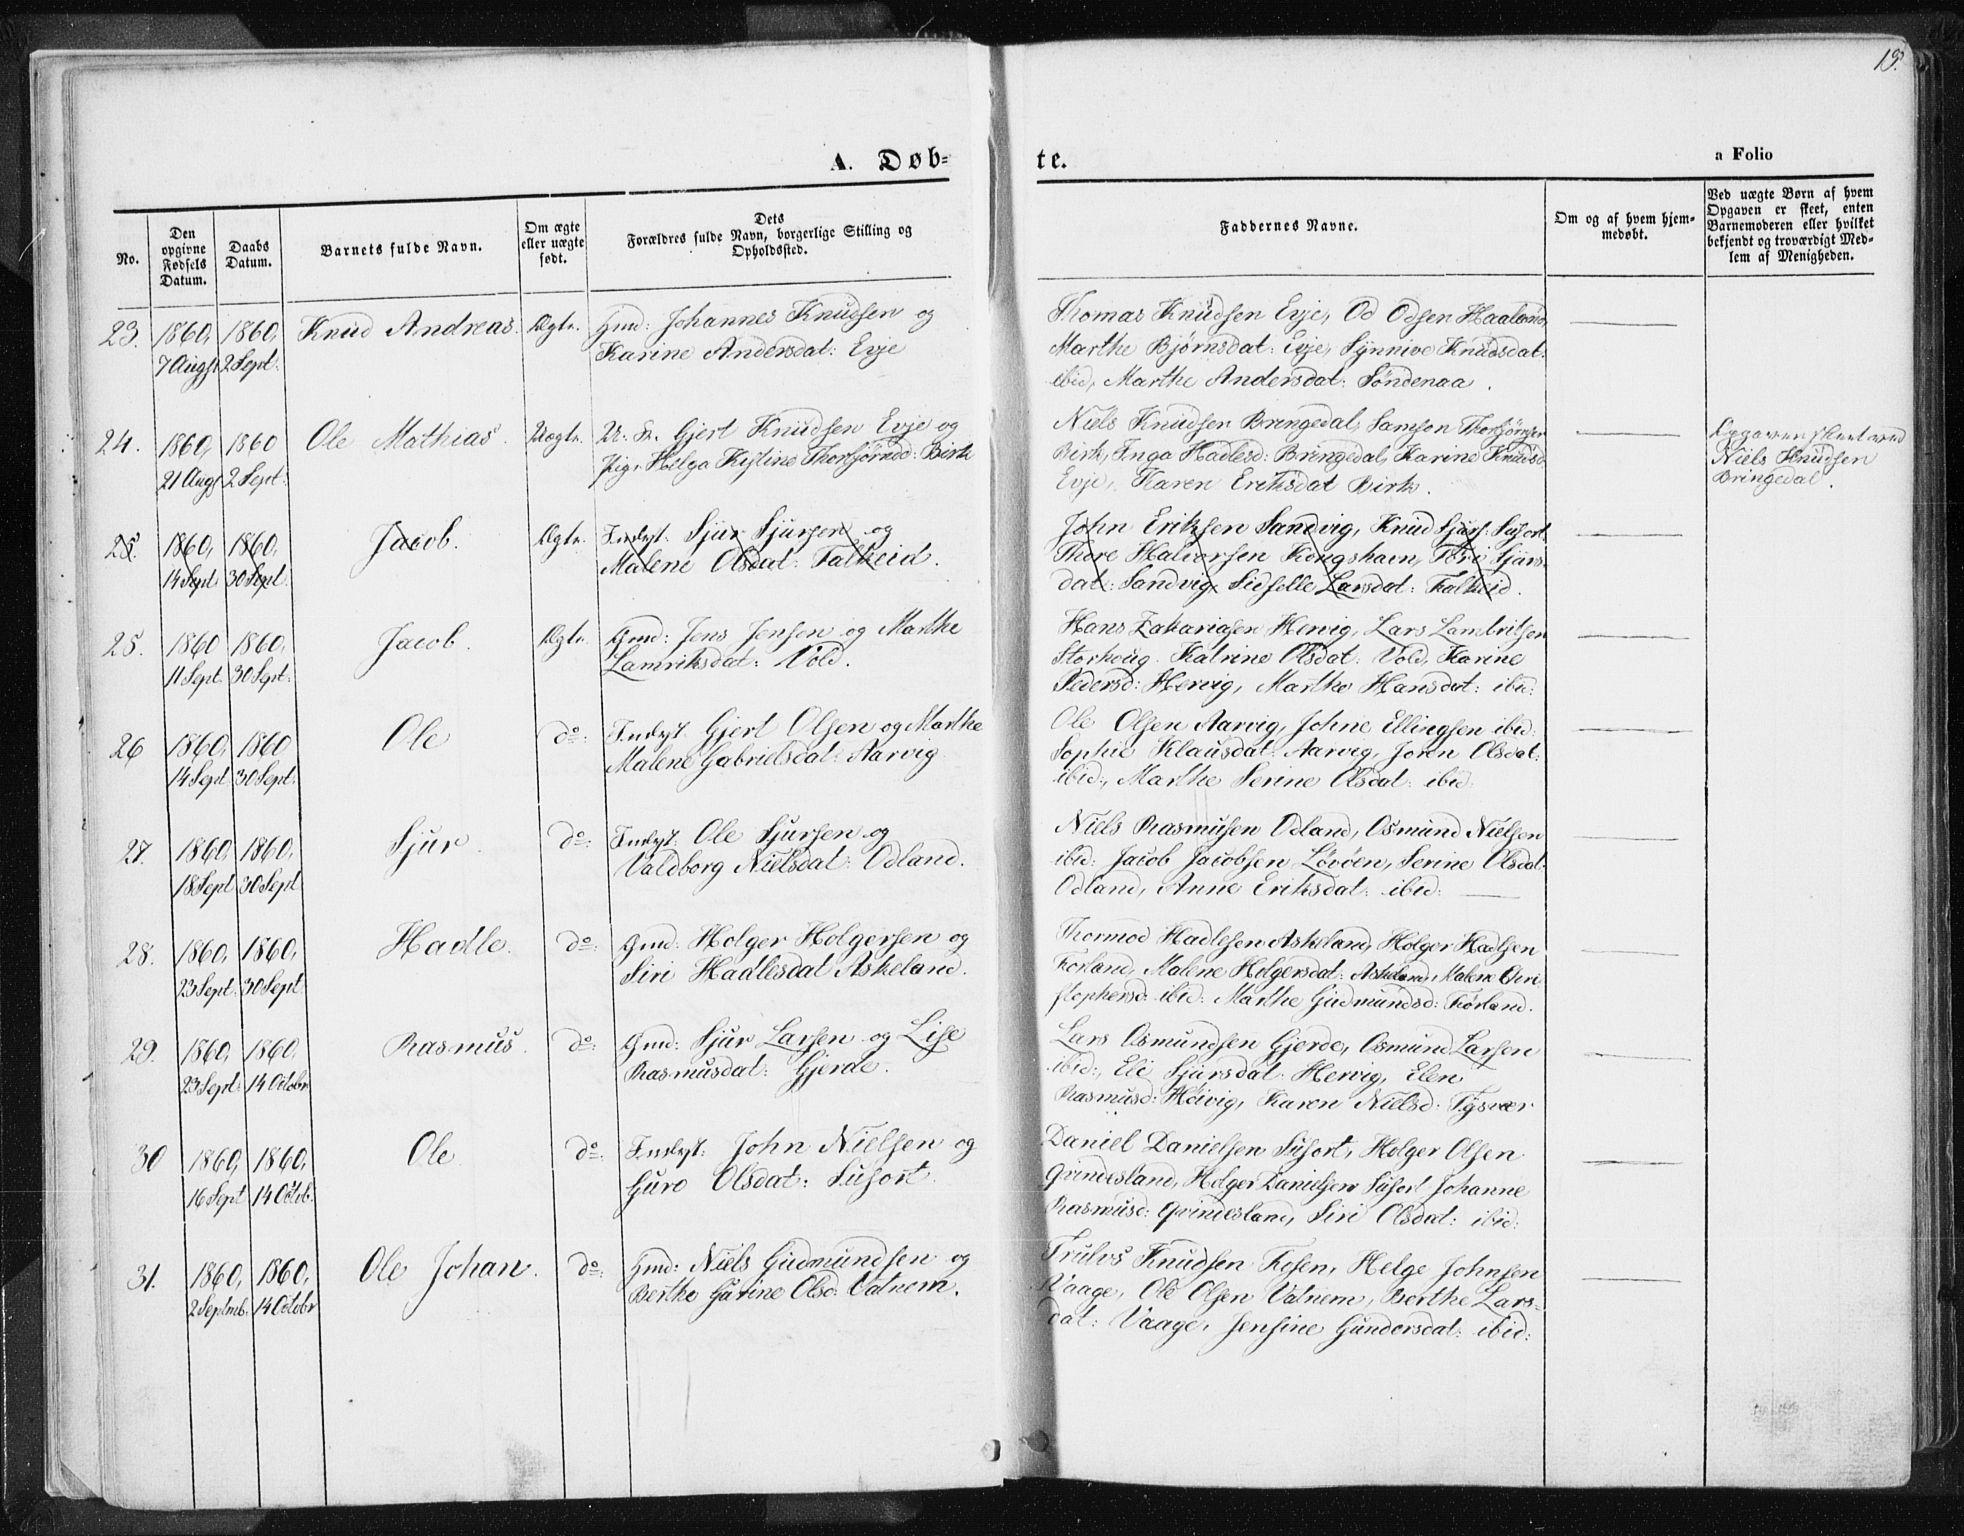 A. Døb-
te.
a Folio
No.
Den opgivne Fødsels Datum.
Daabs Datum.
Barnets fulde Navn.
Om ægte eller uægte født.
Dets Forældres fulde Navn, borgerlige Stilling og Opholdssted.
Faddernes Navne.
Om og af hvem hjemmedøbt.
Ved uægte Børn af hvem Opgaven er skeet, enten Barnemoderen eller hvilket bekjendt og troværdigt Medlem af Menigheden.
23. 1860, 7 Augst 1860, 2 Sept: Knud Andreas. Ægte. Gmd: Johannes Knudsen og
Karine Andersdat: Evje
Thomas Knudsen Evje, Od Odsen Haaland,
Marthe Bjørnsdat: Evje, Synnive Knudsdat:
ibid, Marthe Andersdat: Søndenaa.
24. 1860, 21 Augst 1860 2 Sept: Ole Mathias. Uægte. U. K. Gjert Knudsen Evje og
Pig. Helga Kistine Thorbjørnsd: Birk
Niels Knudsen Bringedal, Samson Thorbjørnsen
Birk, Inga Hadlesd: Bringedal, Karine Knudsd:
Evje, Karen Eriksdat Birk.
Opgaven skeet ved
Niels Knudsen
Bringedal.
25. 1860, 14 Sept 1860, 30 Sept. Jacob. Ægte. Indst: Sjur Sjursen og
Malene Olsdat: Falkeid.
John Eriksen Sandvig, Knud Sjurs: Susort,
Thore Halvorsen Kongshavn, Tori Sjurs-
dat: Sandvig, Sidselle Larsdat: Falkeid.
25. 1860 11 Sept. 1860, 30 Sept: Jacob. Ægte. Gmd: Jens Jensen og Marthe
Lamriksdat: Vold.
Hans Zakariasen Hervig, Lars Lambritsen
Storhoug. Katrine Olsdat: Vold, Karine
Pedersd: Hervig, Marthe Hansdat: ibid:
26 1860, 14 Sept 1860 30 Sept: Ole do: Indst: Gjert Olsen og Marthe
Malene Gabrielsdat: Aarvig
Ole Olsen Aarvig, Johne Ellingsen ibid:
Sophie Klausdat: Aarvig, Joren Olsdat:
ibid:, Marthe Serine Olsdat: ibid:
27. 1860 18 Sept 1860. 30 Sept Sjur. do: Indst: Ole Sjursen og
Valdborg Nielsdat: Odland.
Niels Rasmusen Odland, Osmund Nielsen
ibid: Jacob Jacobsen Løvøen, Serine Olsdat:
Odland, Anne Eriksdat: ibid:
28. 1860, 23 Sept. 1860, 30 Sept Hadle. do: Gmd: Holger Holgersen og
Siri Hadlesdat Askeland.
Thormod Hadlesen Askeland, Holger Hadlsen
Førland, Malene Holgersdat: Askeland, Malene Chri
stophersd: ibid: Marthe Gudmundsd: Førland.
29. 1860, 23 Sept: 1860. 14 Octobr Rasmus. do: Gmd: Sjur Larsen og Lise
Rasmusdat: Gjerde.
Lars Osmundsen Gjerde, Osmund Larsen
ibid:, Eli Sjursdat: Hervig, Elen
Rasmusd: Høivig, Karen Nielsd: Tysvær
30 1860, 16 Sept 1860, 14 Octob. Ole do: Indst: John Nielsen og
Guro Olsdat: Susort.
Daniel Danielsen Susort, Holger Olsen
Grindesland, Holger Danielsen Susort Johanne
Rasmusd: Grindesland, Siri Olsdat: ibid:
31. 1860, 2 Septmb. 1860, 14 Octobr Ole Johan. do: Gmd: Niels Gudmundsen og
Berthe Gurine Olsd: Vatnem.
Trulvs Knudsen Tosen, Helge Johnsen
Vaage, Ole Olsen Vatnem, Berthe Lars-
dat: Vaage, Jensine Gundersdat: ibid: